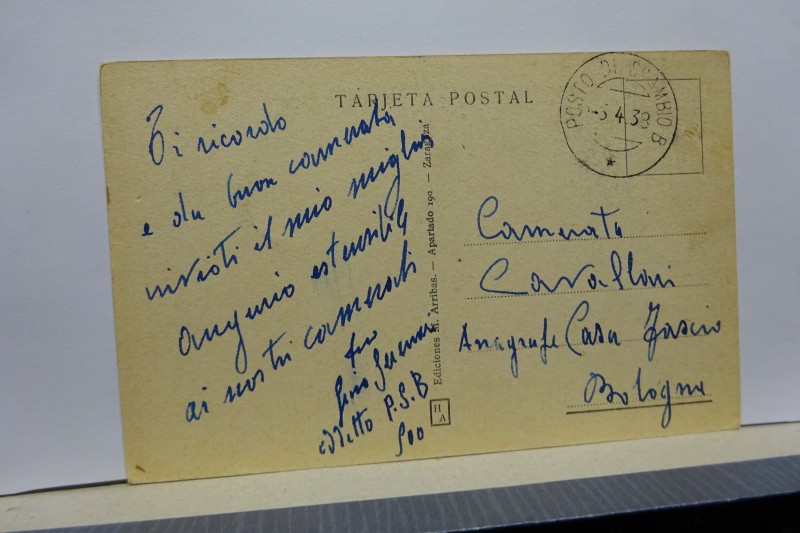 TARJETA POSTAL
POSTO DI SCAMBIO B
3.4.38
Ti ricordo
e da buon camerata
invioti il mio miglior
augurio estensibile
ai nostri camerati
tuo
Gino
P.S.B
900
Ediciones M. Arribas. — Apartado 190 — Zaragoza
HA
Camerata
Cavallari
Anagrafe Casa Fascio
Bologna